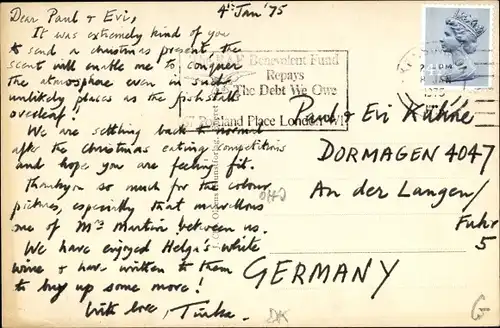 Dear Paul & Evi,
4th Jan '75
It was extremely kind of you
to send a christmas present, the
scent will enable me to conquer
the atmosphere even in such
unlikely places as the fishstall
overleaf!
We are settling back to normal
after the christmas eating competitions
and hope you are feeling fit.
Thankyou so much for the colour
pictures, especially that marvellous
one of Mrs Martin between us.
We have enjoyed Helga's white
wine & have written to them
to buy up some more!
With love,
Benevolent Fund
Repays
The Debt We Owe
67 Portland Place London W1
Paul & Evi Kühne
DORMAGEN 4047
An der Langen/
Fuhr
5
GERMANY
DK
G